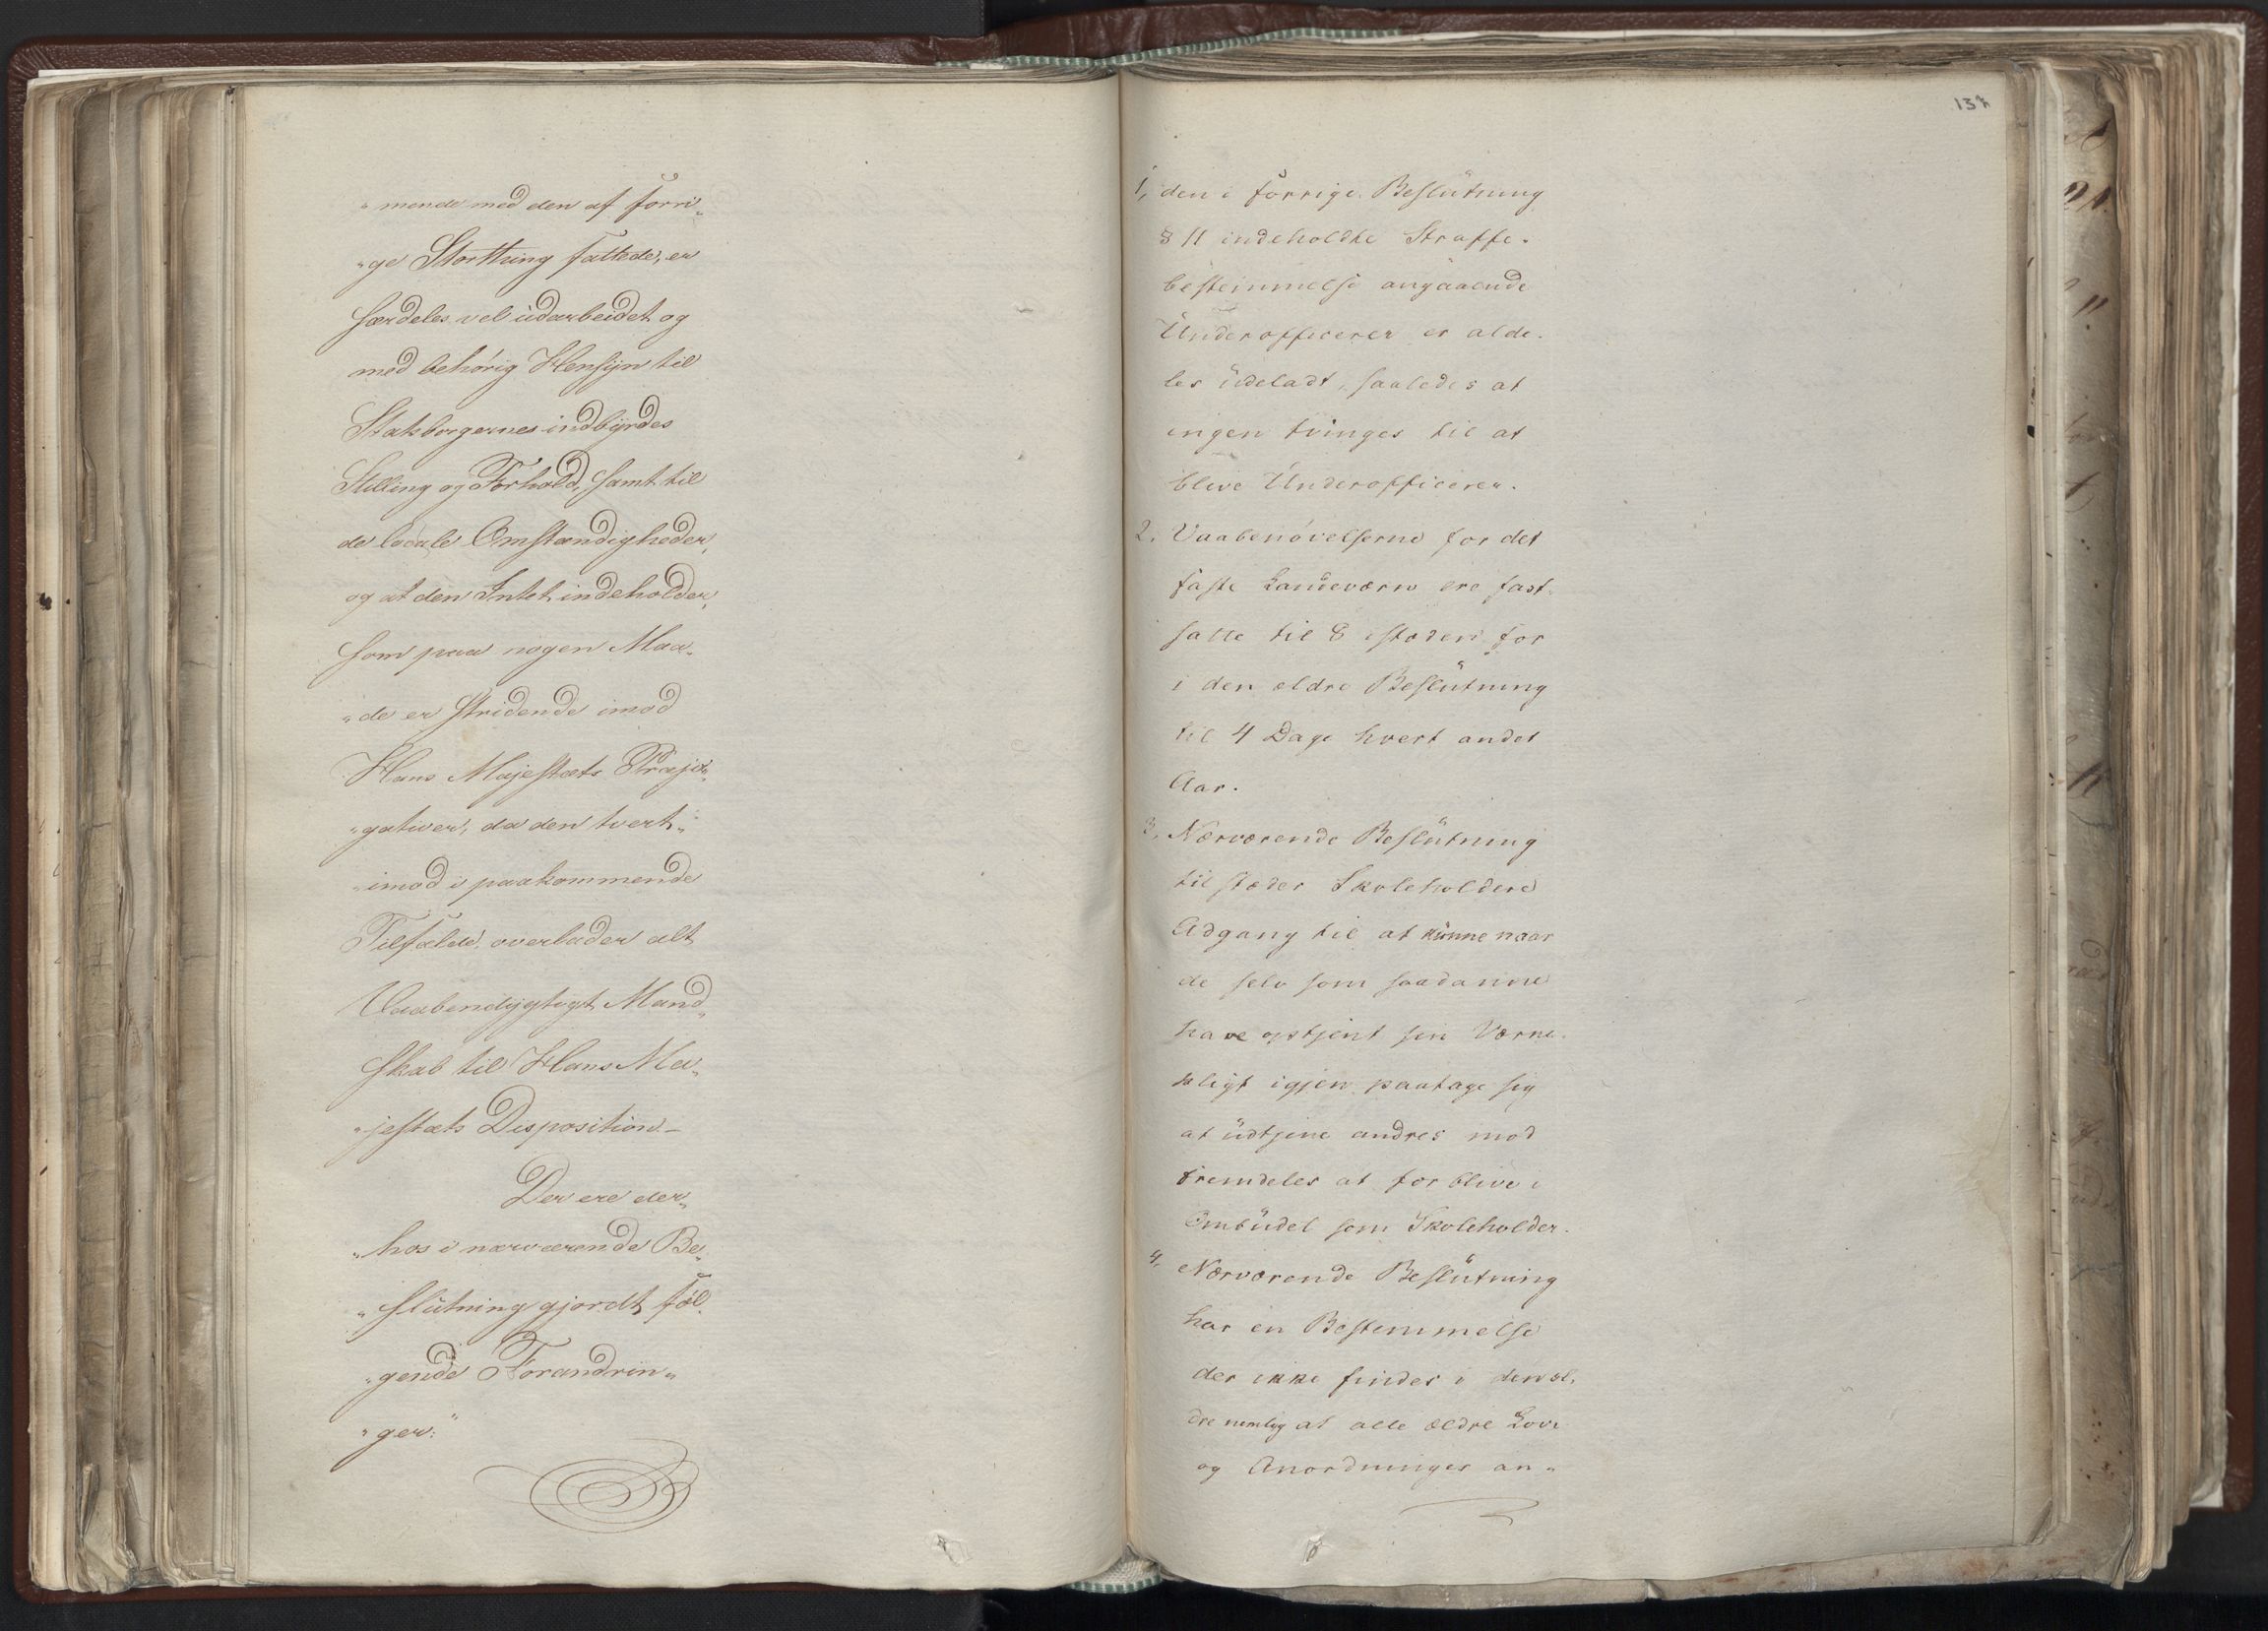 „mende med den af forri„
„ge Storthing fattede, er
særdeles vel üdarbeidet og
med behörig Hensÿn til
Statsborgernes indbÿrdes
Stilling og Forhold, samt til
de locale Omstændigheder,
og at den Intet indeholder,
som paa nogen Maa„
„de er stridende imod
Hans Majestæts Præjo„
„gativer, da den tvert„
„imod i paakommende
Tilfælde, overlader alt
Vaabendygtigt Mand„
skab til Hans Ma„
„jestæts Disposition –
Der ere der„
„hos i nærværende Be„
„slütning gjordt föl„
„gende Forandrin„
„ger:"
137
1, den i förrige Beslütning
§ 11 indeholdte Straffe„
bestemmelse angaaende
Underofficerer er alde„
les üdeladt, saaledes at
ingen tvinges til at
blive Underofficerer.
2, Vaabenövelserne for det
faste Landeværn ere fast„
satte til 8 istæden for
i den ældre Beslütning
til 4 Dage hvert andet
Aar.
3, Nærværende Beslütning
tilstæder Skoleholdere
Adgang til at künne naar
de selv som saadanne
have aftjent sin Værne„
pligt igjen paatage sig
at üdtjene andres mod
fremdeles at forblive i
Ombüdet som Skoleholder.
4, Nærværende Beslütning
har en Bestemmelse
der ikke findes i den æl„
dre nemlig at alle ældre Love
og Anordninger an„